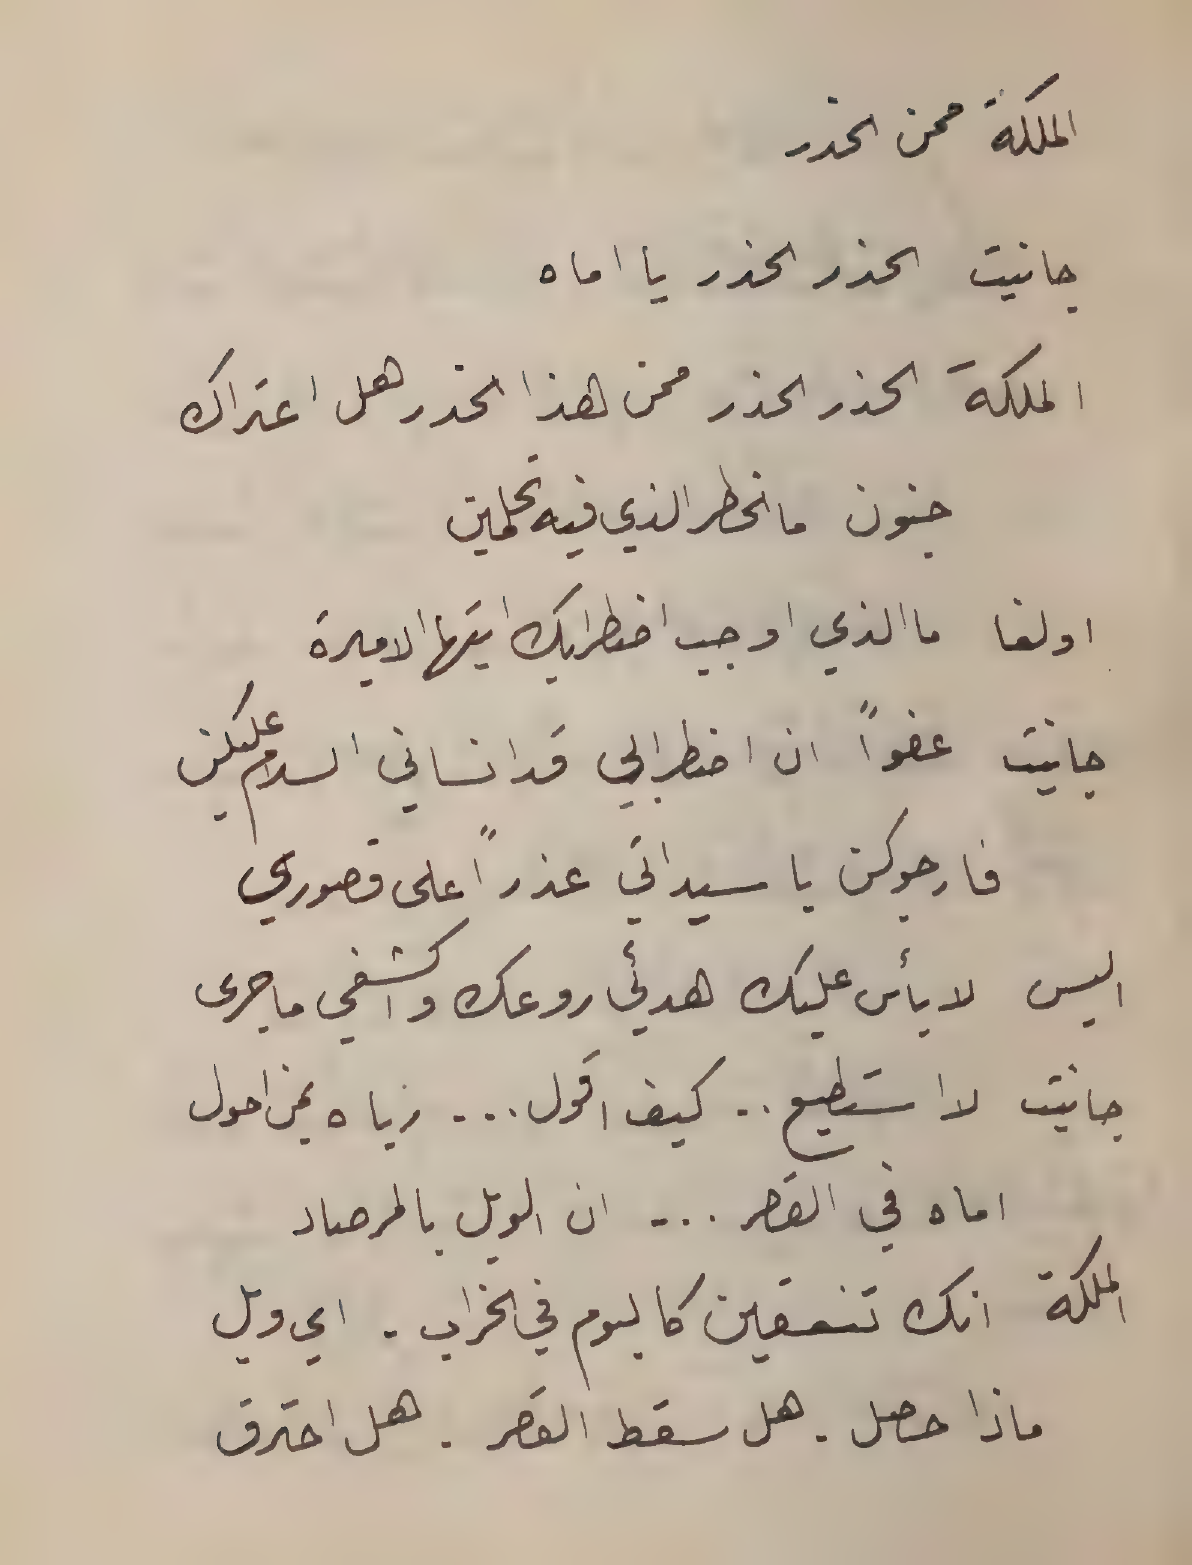 الملكة ممن الحذر
جانيت الحذر الحذر يا اماه
الملكة الحذر الحذر ممن هذا الحذر هل اعتراك
جنون ما الخطر الذي فيه تحلمين
اولغا ما الذي اوجب اضطرابك ايتها الاميرة
جانيت عفواً ان اضطرابي قد انساني السلام عليكن
فارجوكن يا سيداتي عذراً على قصوري
اليس لا بأس عليك هدئي روعك واكشفي ما جرى
جانيت لا استطيع .. كيف اقول ... رباه يمن احول
اماه في القصر ... ان الويل بالمرصاد
الملكة انك تنعقين كالبوم في الخراب . اي ويل
ماذا حصل . هل سقط القصر . هل احترق